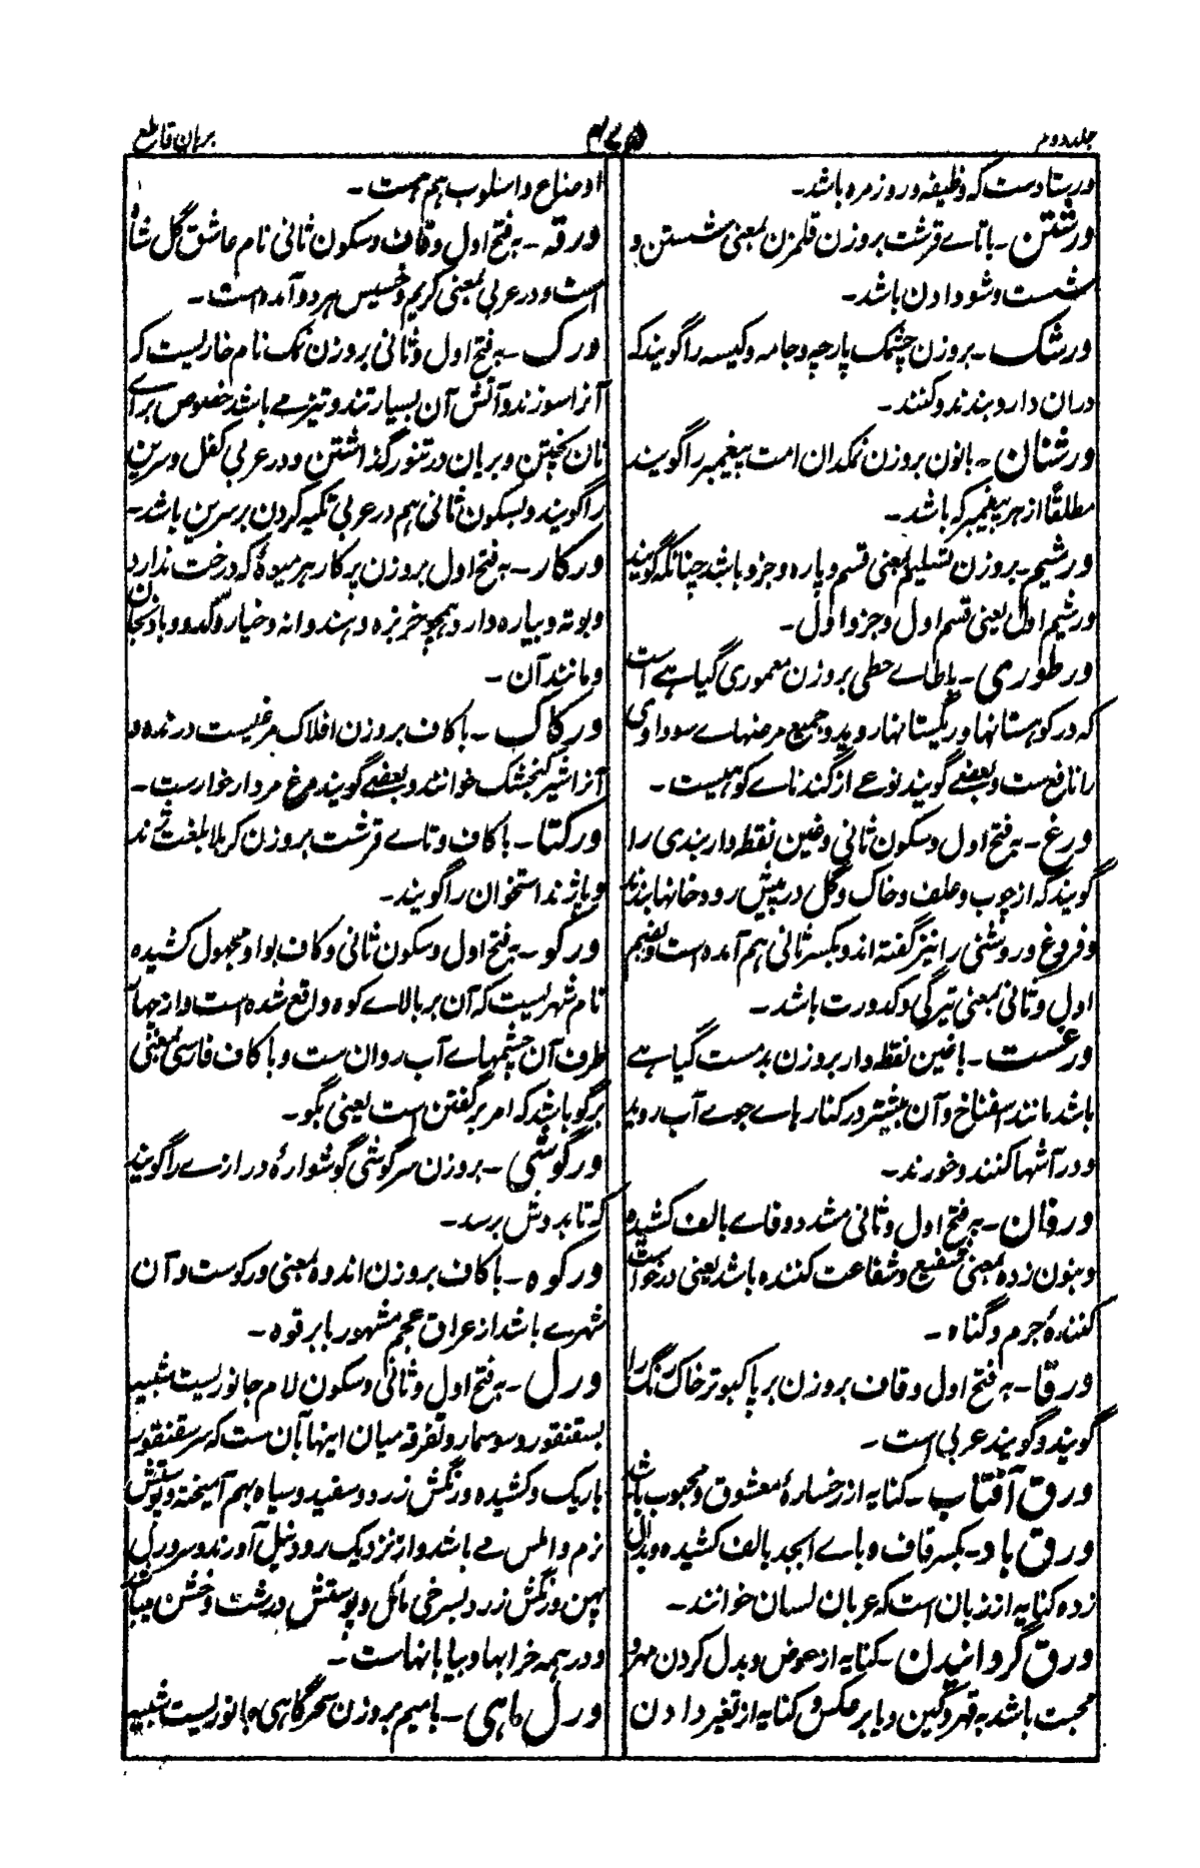 جلد دوم
۴۷۵
برہان قاطع
ورستادست کہ وظیفہ و روزمرہ باشد۔
ورشتن۔ باتاے قرشت بروزن قلمزن بمعنی شستن و
شست و شو دادن باشد۔
ورشک۔ بروزن چشمک پارچہ و جامہ و کیسہ را گویند کہ
دران دارو بندند و کنند۔
ورشنان۔ بانون بروزن نمکدان امت پیغمبر را گویند
مطلقاً از ہر پیغمبر کہ باشد۔
ورشیم۔ بروزن تسلیم بمعنی قسم و پارہ و جزو باشد چنانکہ گویند
ورشیم اول یعنی قسم اول و جزو اول۔
ورطوری۔ باطاے حطی بروزن معموری گیاہے است
کہ در کوہستانہا و ریگستانہا روید و جمیع مرضہاے سوداوی
را نافع ست و بعضے گویند نوعے از گندناے کوہیست۔
ورغ۔ بہ فتح اول و سکون ثانی و غین نقطہ دار بندی را
گویند کہ از چوب و علف و خاک و گل در پیش رودخانہا بندند
و فروغ و روشنی را نیز گفتہ اند و بکسر ثانی ہم آمدہ است و بضم
اول و ثانی بمعنی تیرگی و کدورت باشد۔
ورغست۔ با غین نقطہ دار بروزن بدمست گیاہے
باشد مانند سفناخ و آن بیشتر در کنارہاے جوے آب روید
و در آشہا کنند و خورند۔
ورفان۔ بہ فتح اول و ثانی مشدد و فاے بالف کشیدہ
و بنون زدہ بمعنی شفیع و شفاعت کنندہ باشد یعنی درخواست
کنندۂ جرم و گناہ۔
ورقا۔ بہ فتح اول و قاف بروزن برپا کبوتر خاک رنگ را
گویند و گویند عربی است۔
ورق آفتاب۔ کنایہ از رخسارۂ معشوق و محبوب باشد
ورق باد۔ بکسر قاف و باے ابجد بالف کشیدہ و بدال
زدہ کنایہ از زبان است کہ عربان لسان خوانند۔
ورق گردانیدن۔ کنایہ از عوض و بدل کردن مہر و
محبت باشد بہ قہر و کین و یا برعکس و کنایہ از تغیر دادن
اوضاع و اسلوب ہم ہست۔
ورقہ۔ بہ فتح اول و قاف و سکون ثانی نام عاشق گل شاہ
است و در عربی بمعنی کریم و خسیس ہر دو آمدہ است۔
ورک۔ بہ فتح اول و ثانی بروزن نمک نام خاریست کہ
آنرا سوزند و آتش آن بسیار تند و تیز مے باشد خصوص براے
نان پختن و بریان در تنور گذاشتن و در عربی کفل و سرین
را گویند و بسکون ثانی ہم در عربی تکیہ کردن بر سرین باشد۔
ورکار۔ بہ فتح اول بروزن پرکار ہر میوۂ کہ درخت ندارد
و بوتہ و بیارہ دارد ہمچو خربزہ و ہندوانہ و خیار و کدو و بادنجان
و مانند آن۔
ورکاک۔ با کاف بروزن افلاک مرغیست درندہ و
آنرا شیر گنجشک خوانند و بعضے گویند مرغ مردار خوارست۔
ورکتا۔ با کاف و تاے قرشت بروزن کربلا بلغت ژند
و پاژند استخوان را گویند۔
ورکو۔ بہ فتح اول و سکون ثانی و کاف بواو مجہول کشیدہ
نام شہریست کہ آن بر بالاے کوہ واقع شدہ است و از چہار
طرف آن چشمہاے آب روان ست و با کاف فارسی بمعنی
برگو باشد کہ امر بر گفتن است یعنی بگو۔
ورگوشی۔ بروزن سرگوشی گوشوارۂ درازے را گویند
کہ تا بدوش برسد۔
ورکوہ۔ با کاف بروزن اندوہ بمعنی ورکوست و آن
شہرے باشد از عراق عجم مشہور بابرقوہ۔
ورل۔ بہ فتح اول و ثانی و سکون لام جانوریست شبیہ
بسقنقور و سوسمار و تفرقہ میان اینہا آن ست کہ سر سقنقور
باریک و کشیدہ و رنگش زرد و سفید و سیاہ بہم آمیختہ و پوستش
نرم و املس مے باشد و از نزدیک رود نیل آورند و سر ورل
پہن و رنگش زرد بسرخی مائل و پوستش درشت و خشن میباشد
و در ہمہ خرابہا و بیابانہاست۔
ورل ماہی۔ با میم بروزن سحرگاہی جانوریست شبیہ